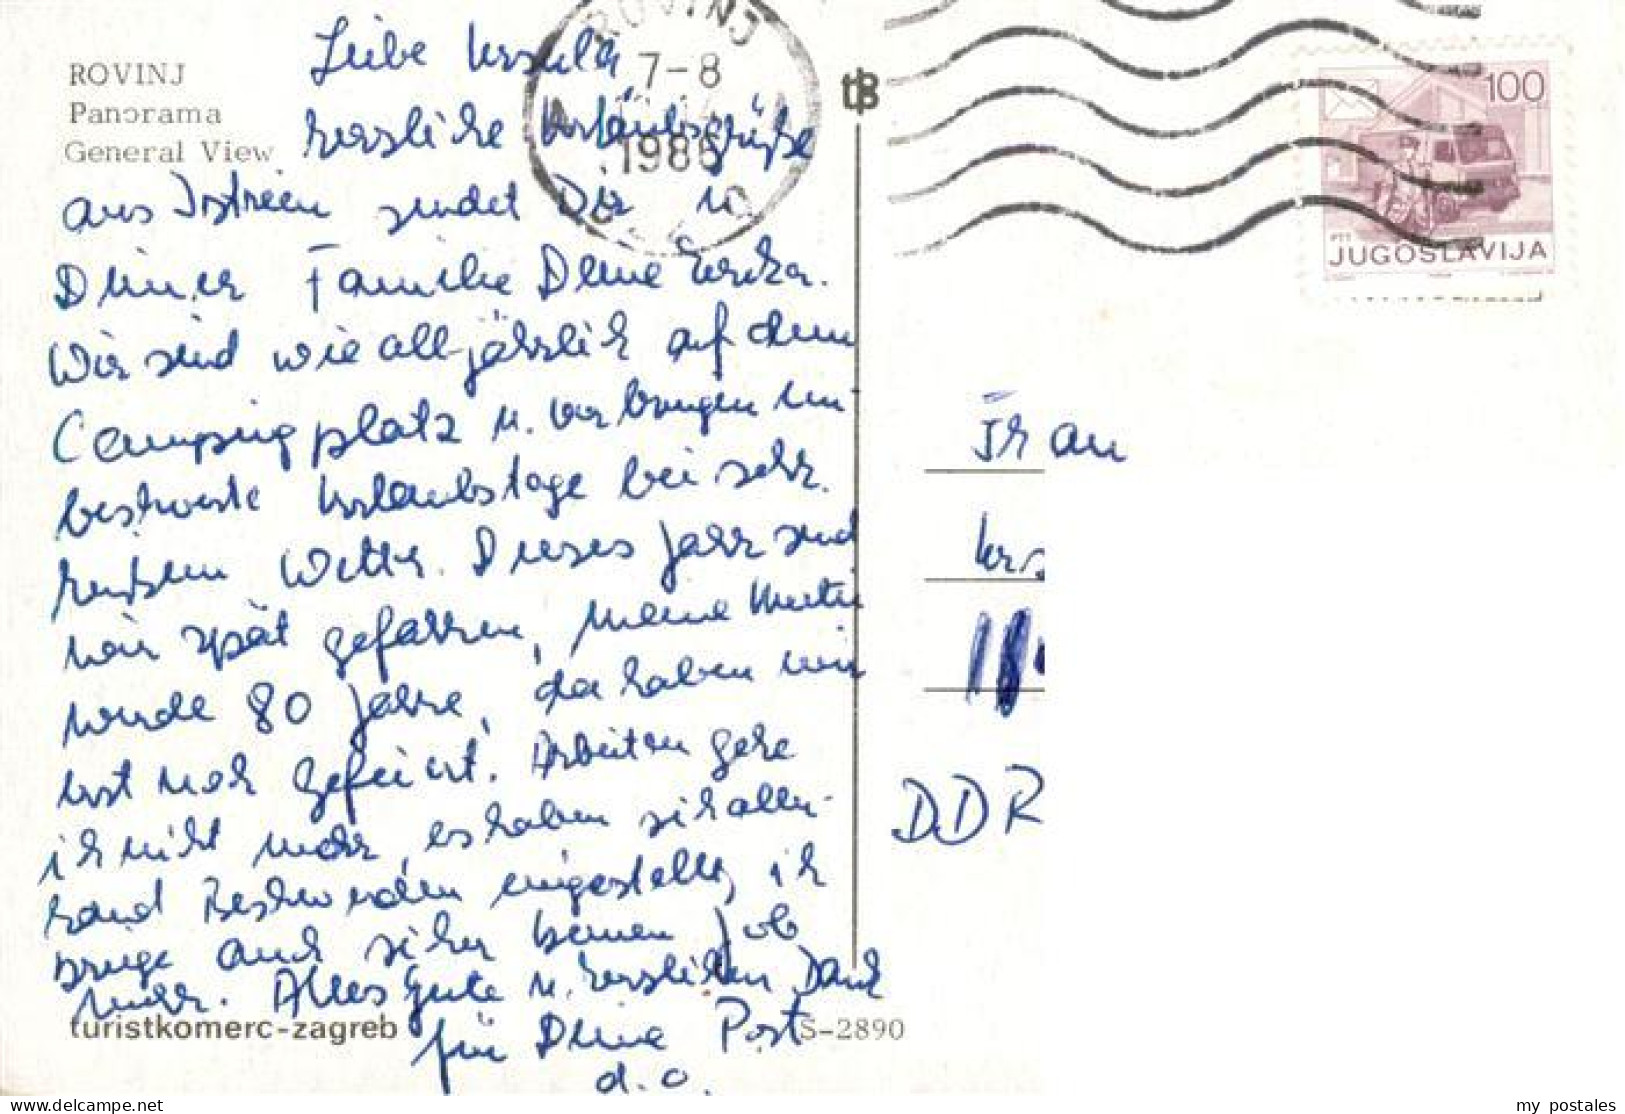 ROVINJ
Panorama
General View
Liebe Ursula
herzliche Urlaubsgrüße
aus Istrien sendet Dir u
Deiner Familie Deine
Wir sind wie all-jährlich auf dem
Campingplatz u. verbringen un-
beschwerte Urlaubstage bei sehr
heißem Wetter. Dieses Jahr sind
wir spät gefahren, meine Mutti
wurde 80 Jahre, da haben wir
erst noch gefeiert. Arbeiten gehe
ich nicht mehr, es haben sich aller-
hand Beschwerden eingestellt, ich
kriege auch sicher keinen Job
mehr. Alles Gute u. herzlichen Dank
für Deine Post
d. O.
turistkomerc-zagreb
S-2890
ROVINJ
7-8
1986
100
PTT
JUGOSLAVIJA
Frau
Urs
DDR
my postales